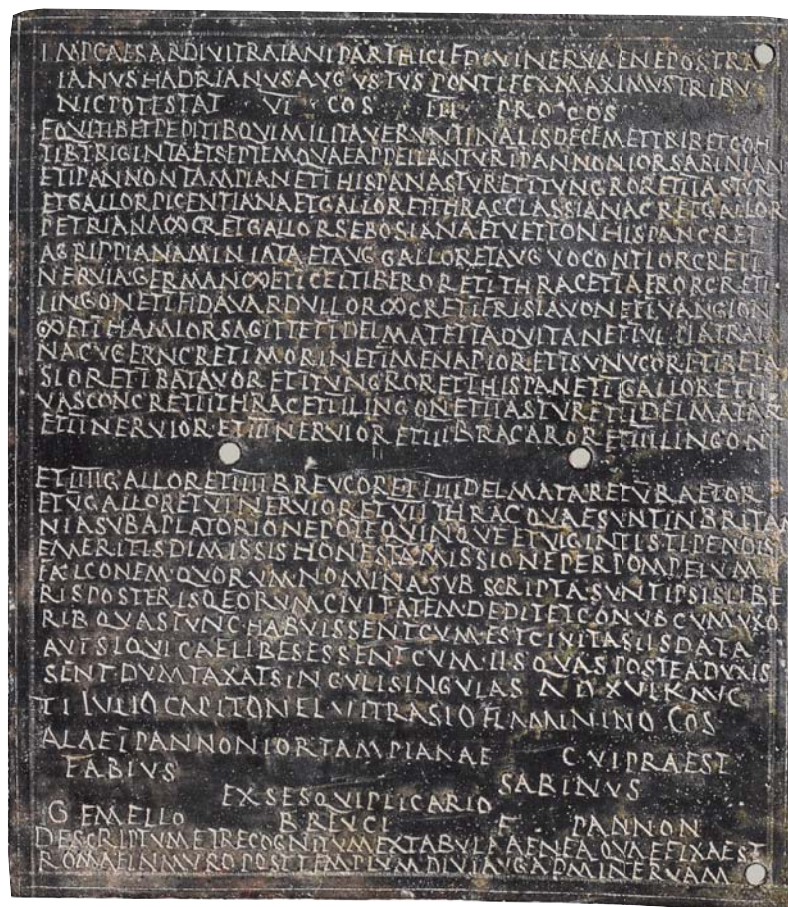 IMP CAESAR DIVI TRAIANI PARTHICI F DIVI NERVAE NEPOS TRA
IANVS HADRIANVS AVGVSTVS PONTIFEX MAXIMVS TRIBV
NIC POTESTAT VI COS III PROCOS
EQVITIB ET PEDITIB QVI MILITAVERVNT IN ALIS DECEM ET TRIB ET COH
TIB TRIGINTA ET SEPTEM QVAE APPELLANTVR I PANNONIOR SABINIAN
ET I PANNON TAMPIAN ET I HISPAN ASTVR ET I TVNGROR ET II ASTVR
ET GALLOR PICENTIANA ET GALLOR ET THRAC CLASSIANA C R ET GALLOR
PETRIANA ∞ C R ET GALLOR SEBOSIANA ET VETTON HISPAN C R ET
AGRIPPIANA MINIATA ET AVG GALLOR ET AVG VOCONTIOR C R ET I
NERVIA GERMAN ∞ ET I CELTIBEROR ET I THRAC ET I AFROR C R ET I
LINGON ET I FID VARDVLLOR ∞ C R ET I FRISIAVON ET I VANGION
∞ ET I HAMIOR SAGITT ET I DELMAT ET I AQVITAN ET I VLPIA TRAIA
NA CVGERN C R ET I MORIN ET I MENAPIOR ET I SVNVCOR ET I BETA
SIOR ET I BATAVOR ET I TVNGROR ET I HISPAN ET II GALLOR ET II
VASCON C R ET II THRAC ET II LINGON ET II ASTVR ET II DELMATAR
ET II NERVIOR ET III NERVIOR ET III BRACAROR ET IIII LINGON
ET IIII GALLOR ET IIII BREVCOR ET IIII DELMATAR ET V RAETOR
ET V GALLOR ET VI NERVIOR ET VII THRAC QVAE SVNT IN BRITAN
NIA SVB A PLATORIO NEPOTE QVINQVE ET VIGINTI STIPENDIS
EMERITIS DIMISSIS HONESTA MISSIONE PER POMPEIVM
FALCONEM QVORVM NOMINA SVBSCRIPTA SVNT IPSIS LIBE
RIS POSTERISQ EORVM CIVITATEM DEDIT ET CONVB CVM VXO
RIB QVAS TVNC HABVISSENT CVM EST CIVITAS IIS DATA
AVT SIQVI CAELIBES ESSENT CVM IIS QVAS POSTEA DVXIS
SENT DVMTAXAT SINGVLI SINGVLAS A D XVI K AVG
TI IVLIO CAPITONE L VITRASIO FLAMININO COS
ALAE I PANNONIOR TAMPIANAE CVI PRAEST
FABIVS SABINVS
EX SESQVIPLICARIO
GEMELLO BREVCI F PANNON
DESCRIPTVM ET RECOGNITVM EX TABVLA AENEA QVAE FIXA EST
ROMAE IN MVRO POST TEMPLVM DIVI AVG AD MINERVAM